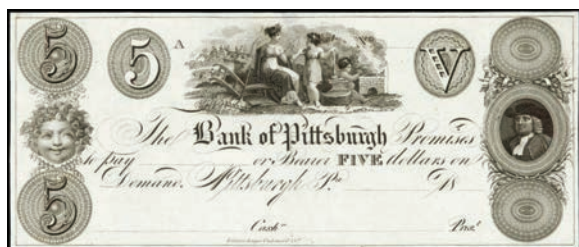 5 5 A V
The Bank of Pittsburgh Promises
to pay or Bearer FIVE dollars on
Demand. Pittsburgh Pa. 18
5 Cashr. Prest.